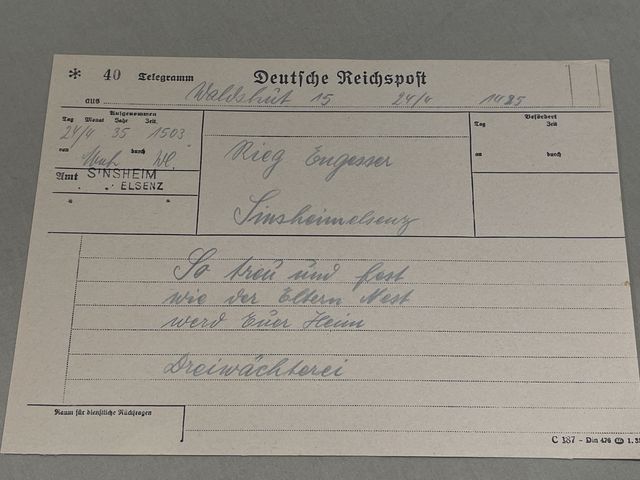 * 40 Telegramm Deutsche Reichspost
aus Waldshut 15 24/4 1485
Aufgenommen
Tag Monat Jahr Zeit
24/4 35 1503
von durch
Amt SINSHEIM
ELSENZ
Rieg Engesser
Sinsheimelsenz
Befördert
Tag Zeit
an durch
So treu und fest
wie der Eltern Nest
werd Euer Heim
Dreiwächterei
Raum für dienstliche Rückfragen
C 187 - Din 476